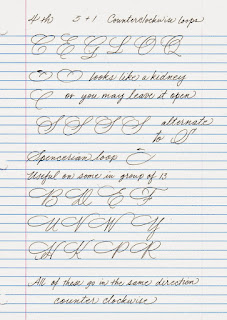 4th 5+1 Counterclockwise loops
C E G L O Q
looks like a kidney
or you may leave it open
S S S S alternate
to S
Spencerian loop
Useful on some in group of 13
B D E F
U V W Y
H K P R
All of these go in the same direction
counter clockwise